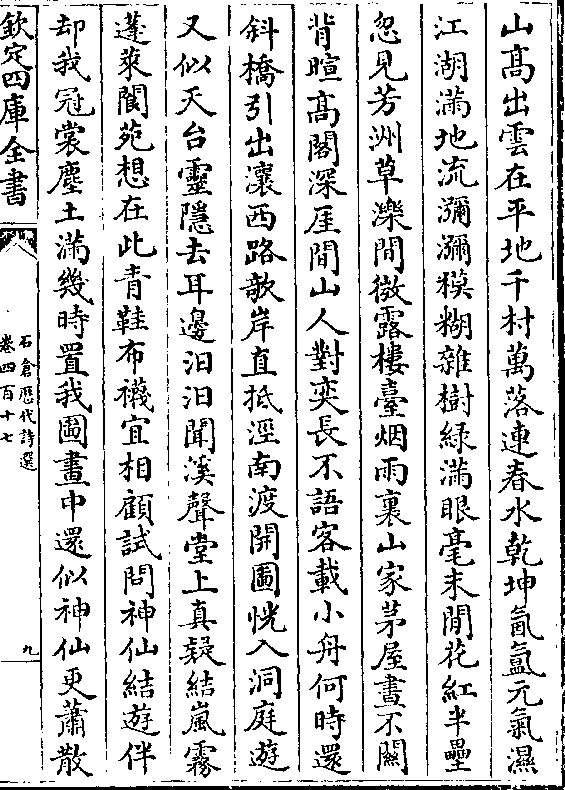 山髙出雲在平地千村萬落連春水乾坤氤氲元氣濕
江湖滿地流瀰瀰糢糊雜樹緑滿眼毫末閒花紅半壘
忽見芳洲草濼間微露樓臺烟雨裏山家茅屋晝不闗
背暄髙閣深厓間山人對奕長不語客載小舟何時還
斜橋引出瀼西路欹岸直抵涇南渡開圖恍入洞庭遊
又似天台靈隠去耳邊汩汩聞溪聲堂上真疑結嵐霧
蓬萊閬苑想在此青鞋布襪宜相顧試問神仙結遊伴
却我冠裳塵土滿幾時置我圖畫中還似神仙更蕭散
欽定四庫全書
石倉歴代詩選
卷四百十七
九